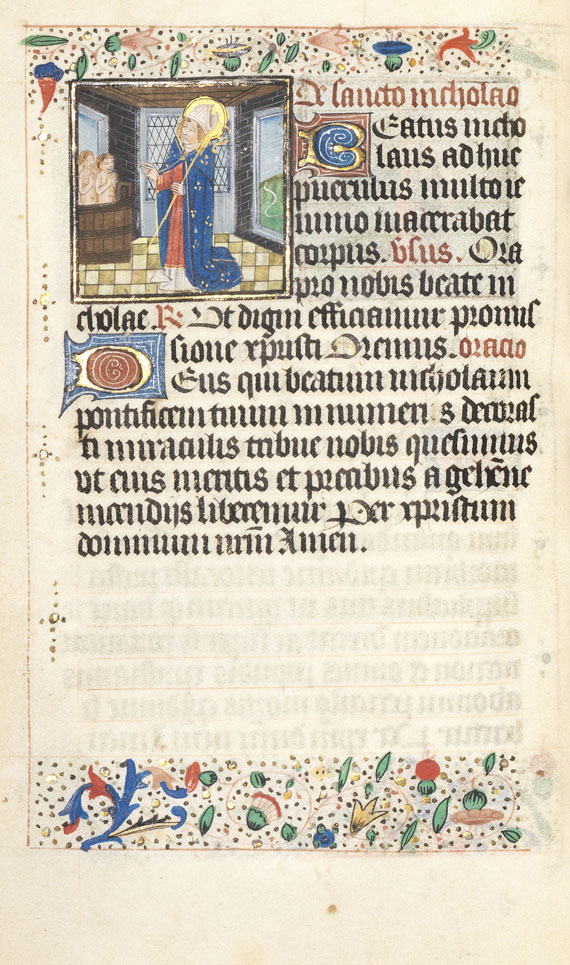 De sancto nicholao
Eatus nicho
laus adhuc
puerulus multo ie
iunio macerabat
corpus. Vsus. Ora
pro nobis beate ni
cholae. R. Vt digni efficiamur promis
sione xpristi Oremus. oracio
Deus qui beatum nicholaum
pontificem tuum innumeri s decoras
ti miraculis tribue nobis quesumus
vt eius meritis et precibus a gehēne
incendijs liberemur Per xpristum
dominum nrm̄ Amen.